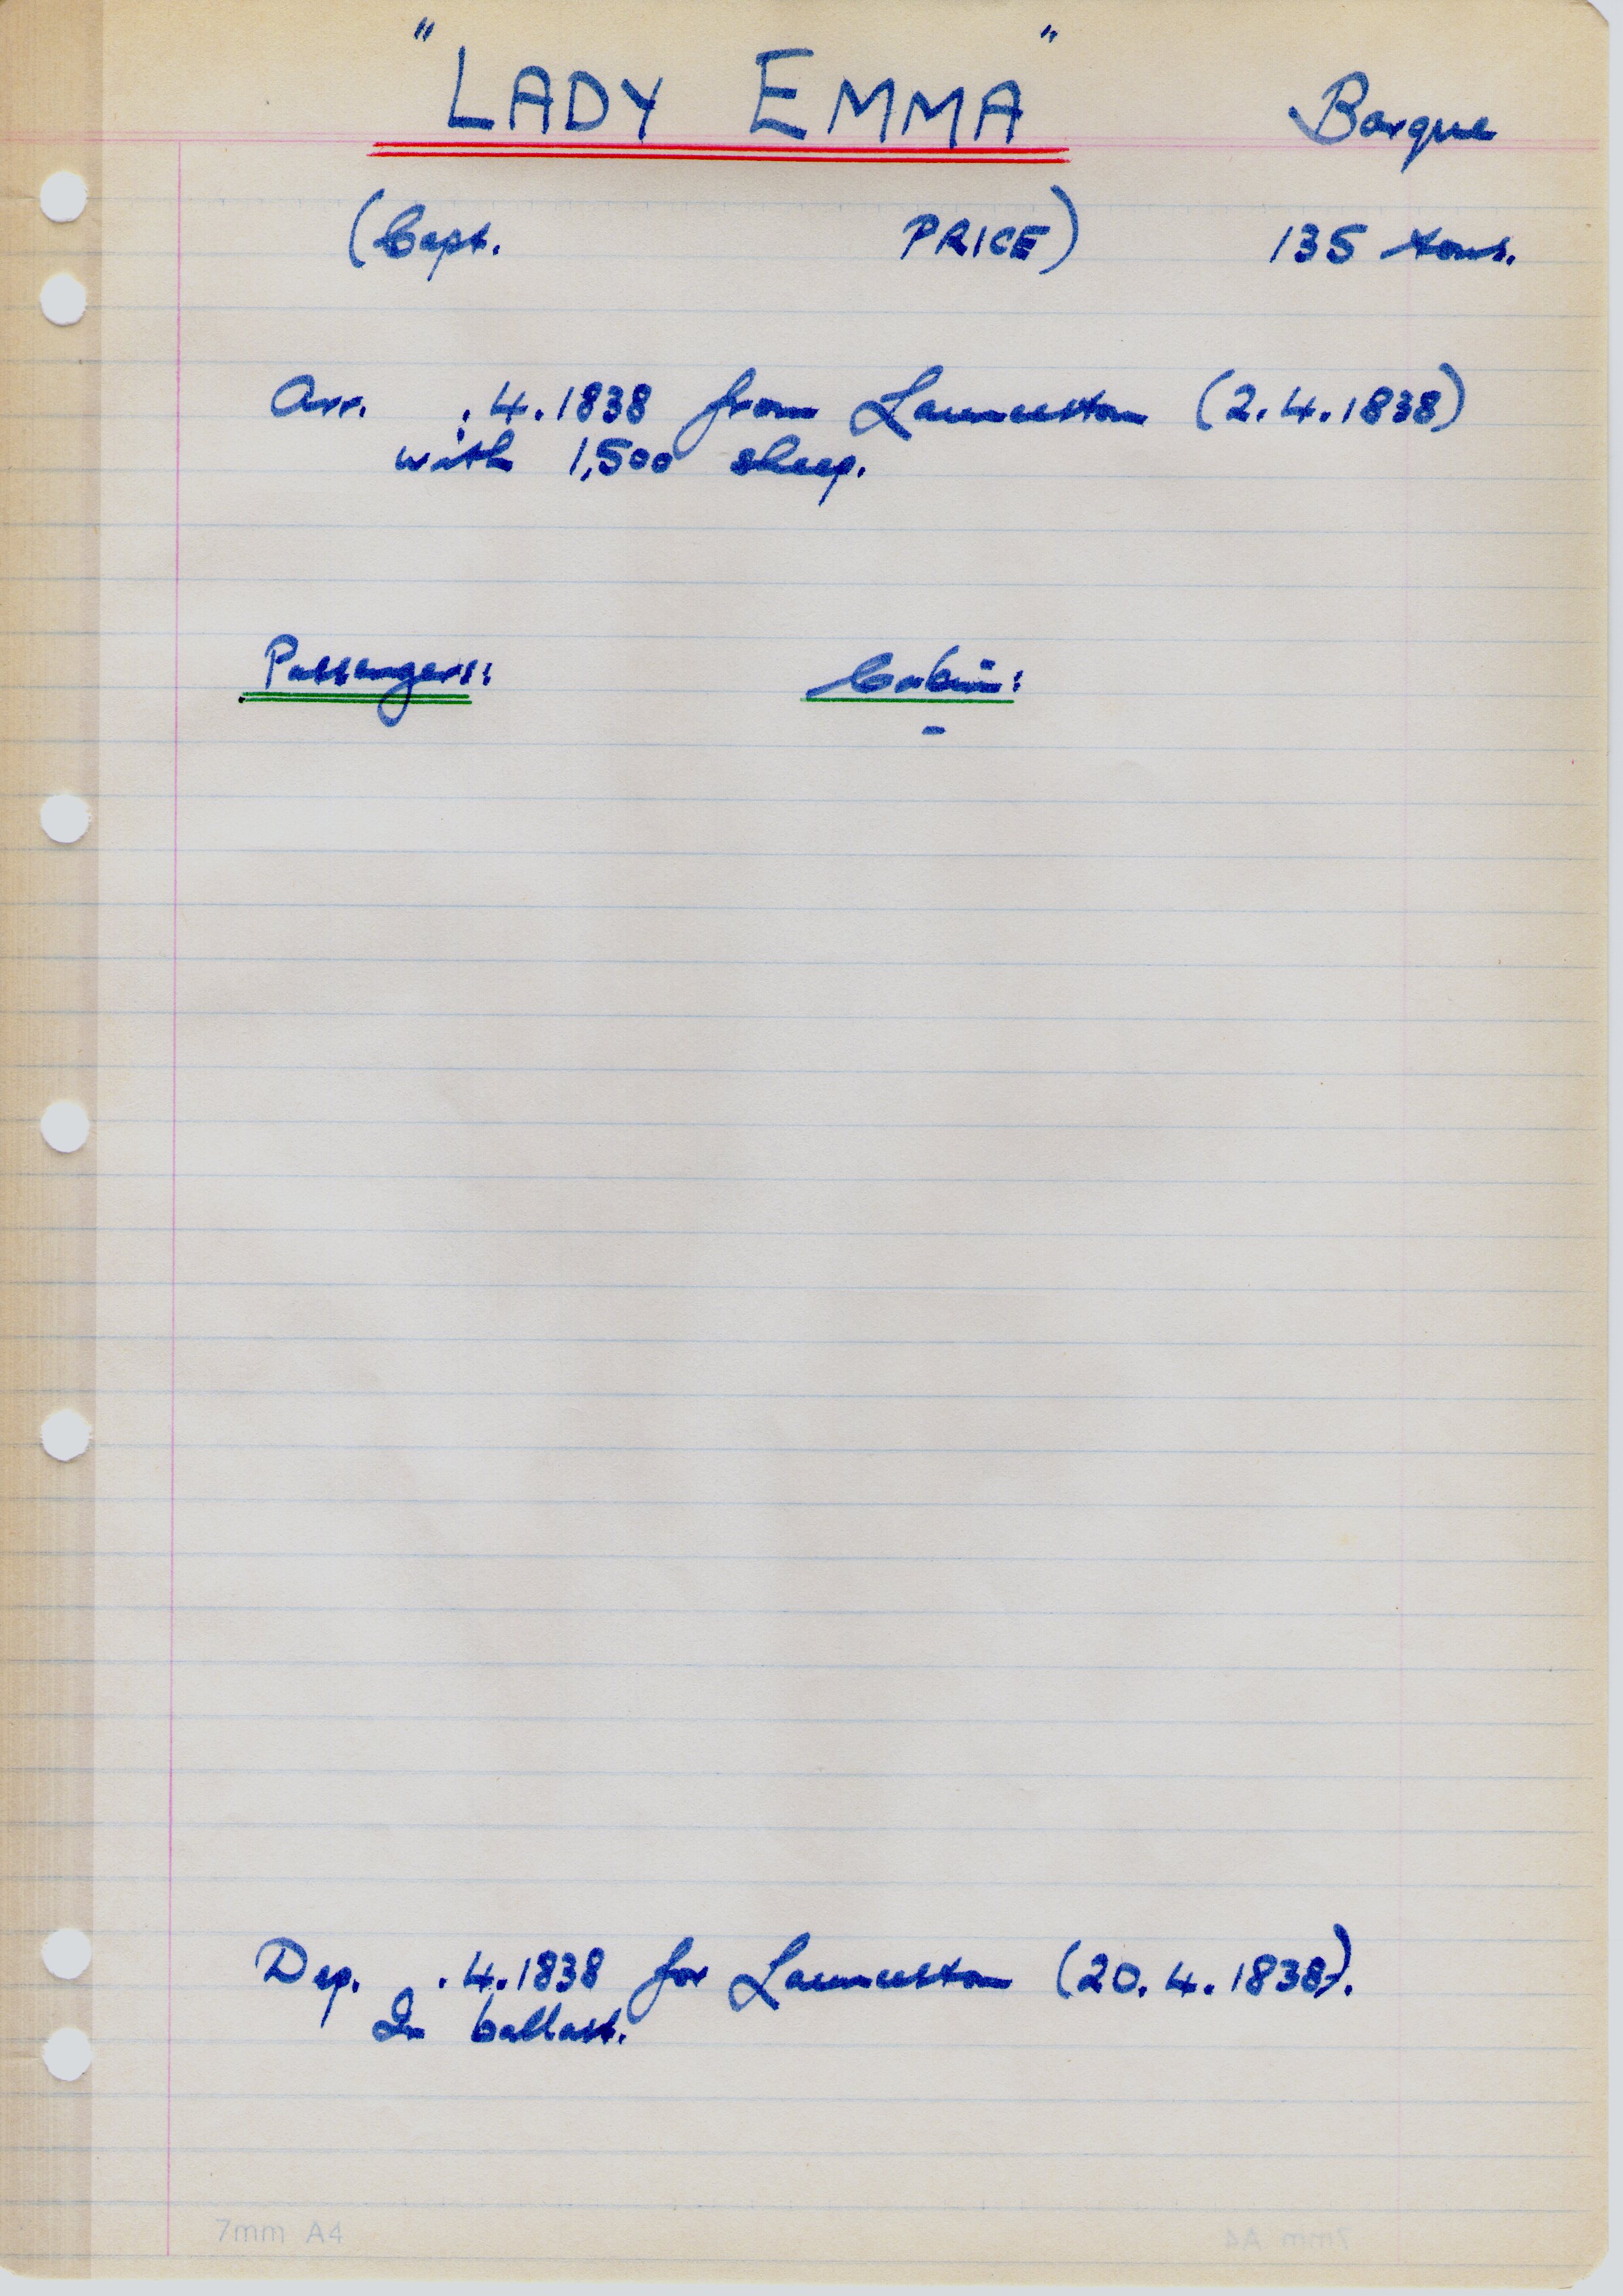 "LADY EMMA" Barque
(Capt. PRICE) 135 tons.
Arr. .4.1838 from Launceston (2.4.1838)
with 1,500 sheep.
Passengers: Cabin:
-
Dep. .4.1838 for Launceston (20.4.1838).
In ballast.
7mm A4